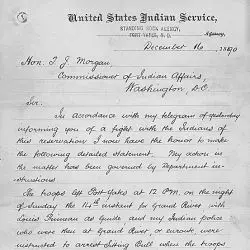 United States Indian Service,
STANDING ROCK AGENCY,
FORT YATES, N. D.
Agency,
December 16, 1890
Hon. T J. Morgan
Commissioner of Indian Affairs,
Washington D.C.
Sir:
In accordance with my telegram of yesterday
informing you of a fight with the Indians of
this reservation I now have the honor to make
the following detailed statement. My action in
the matter has been governed by Department in-
structions
The troops left Fort Yates at 12 P.M. on the night
of Sunday the 14th instant for Grand River with
Louis Primeau as guide and my Indian police
who were then at Grand River, or enroute were
instructed to arrest Sitting Bull when the troops